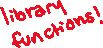 library
functions!